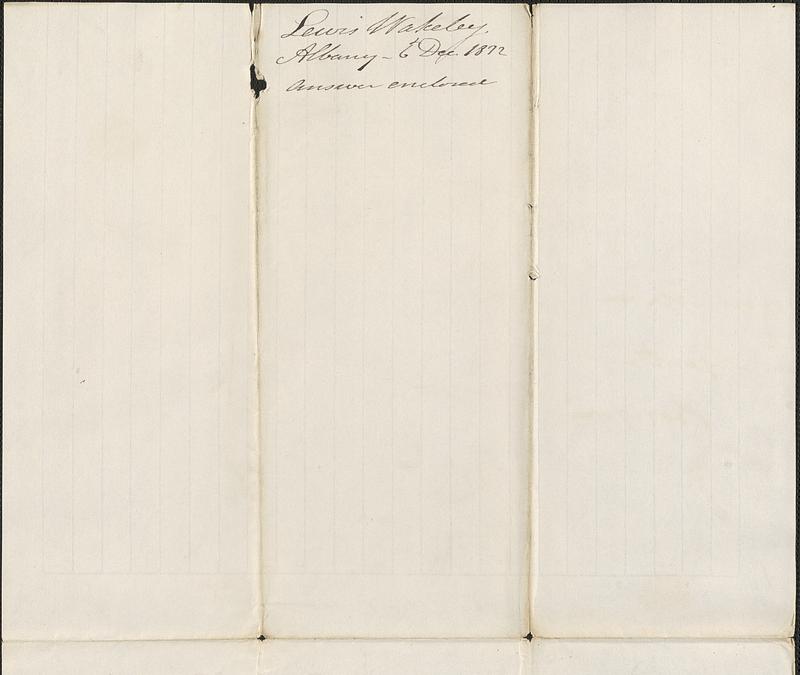 Lewis Wakeley.
Albany - 6 Dec 1872
answer enclosed